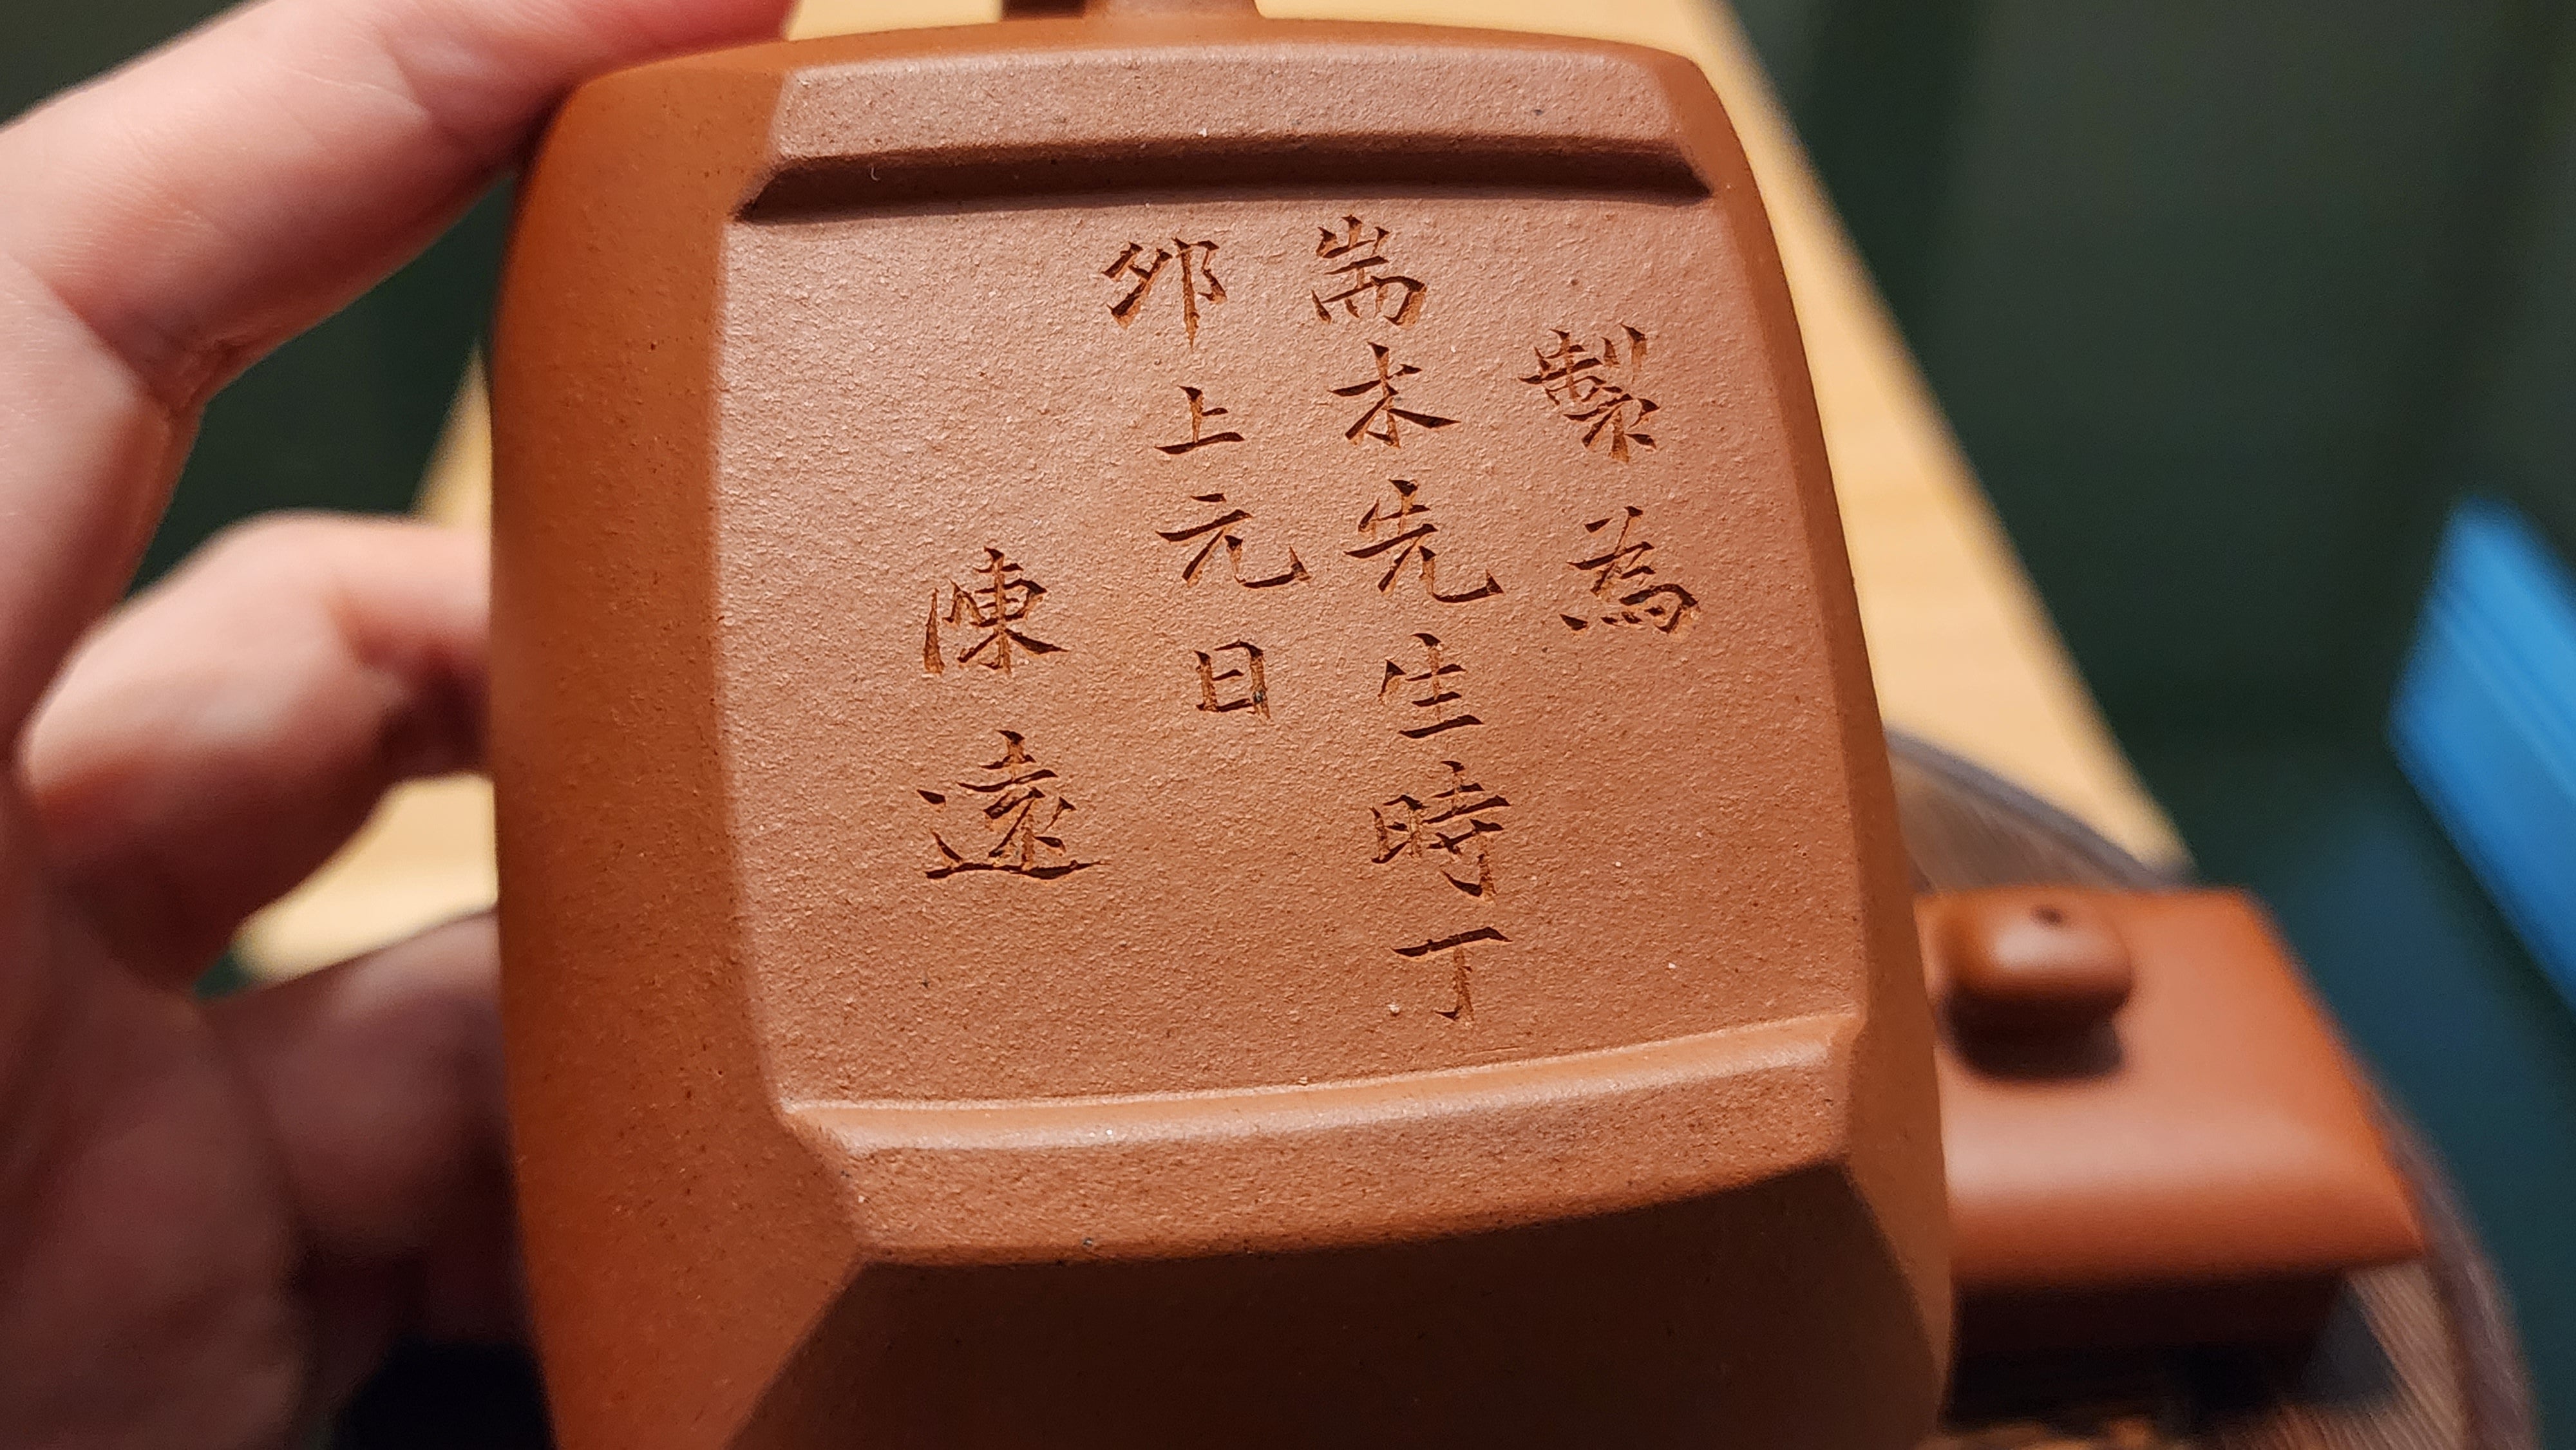 製為
耑木先生時丁
卯上元日
陳遠